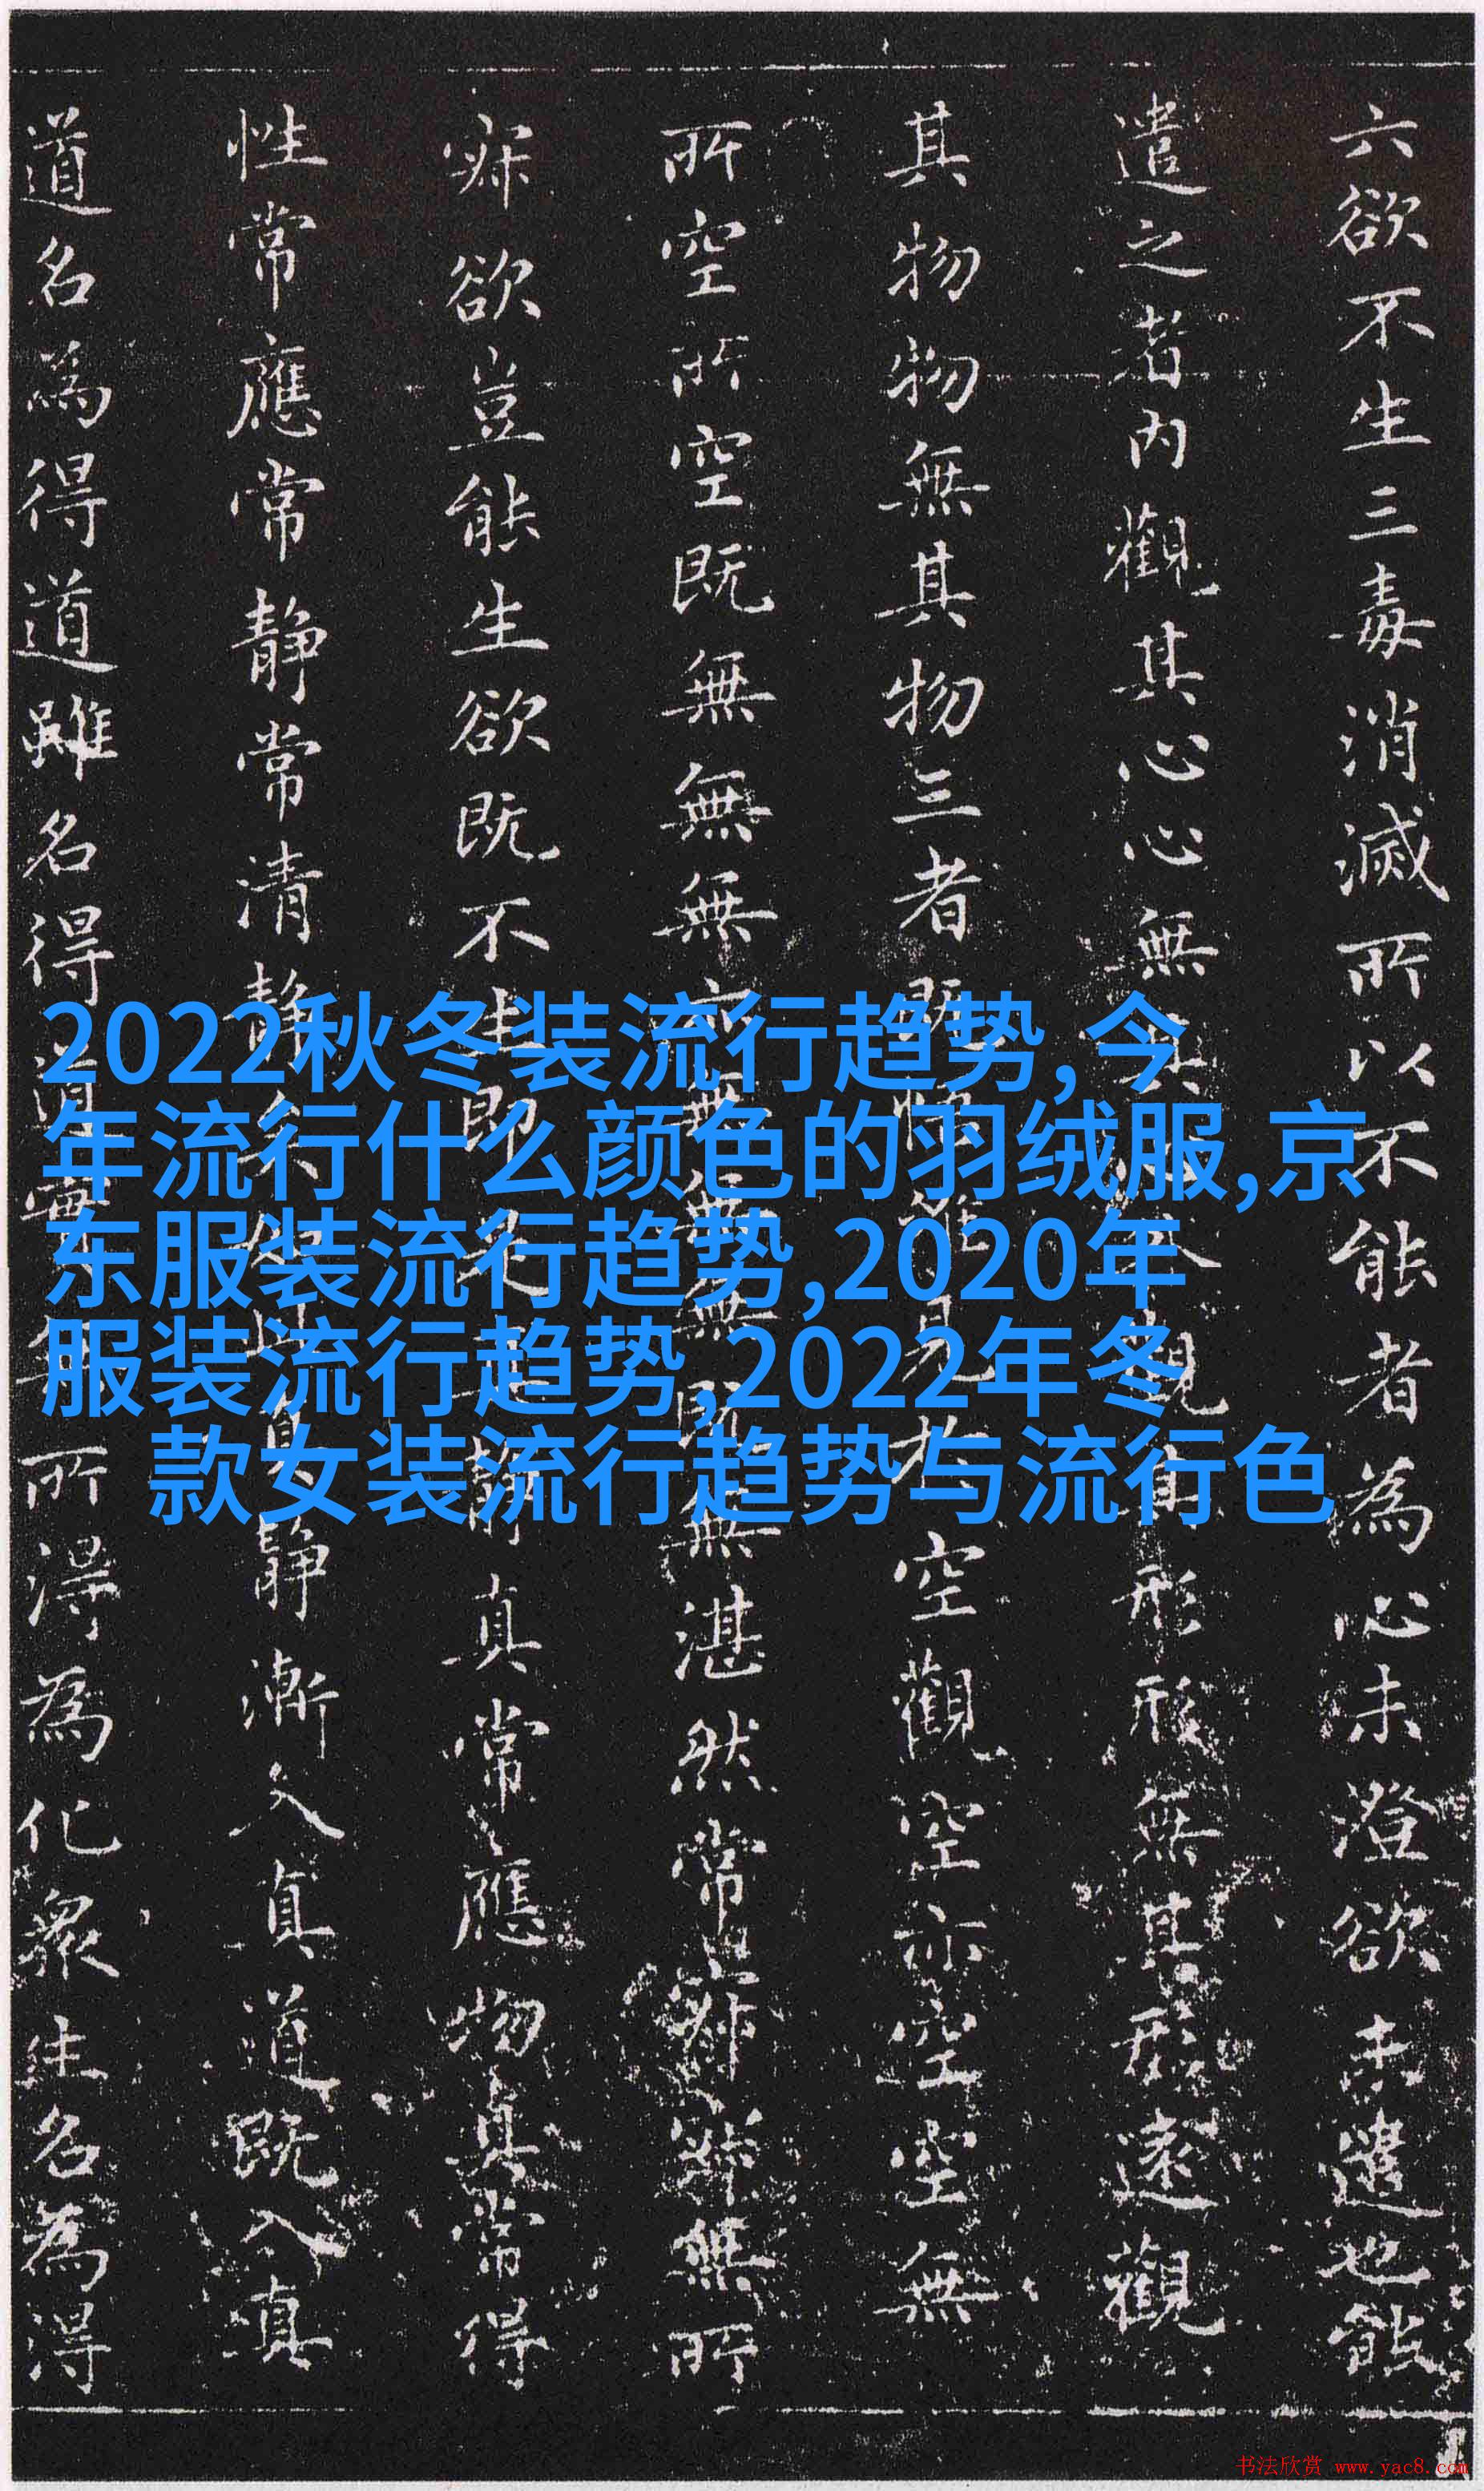 六欲不生三毒消滅所以不能者為心未澄欲未遣也能
遣之者內觀其心心無其心外觀其形形無其形遠觀
其物物無其物三者既悟唯見於空觀空亦空空無
所空所空既無無無亦無無無既無湛然常寂寂無所
寂欲豈能生欲既不生即是真静真常應物真常得
性常應常静常清静矣如此真静漸入真道既入真
道名為得道雖名得道實無所得為化眾生名為得
2022秋冬装流行趋势,今
年流行什么颜色的羽绒服,京
东服装流行趋势,2020年
服装流行趋势,2022年冬
款女装流行趋势与流行色
书法欣赏 www.yac8.com